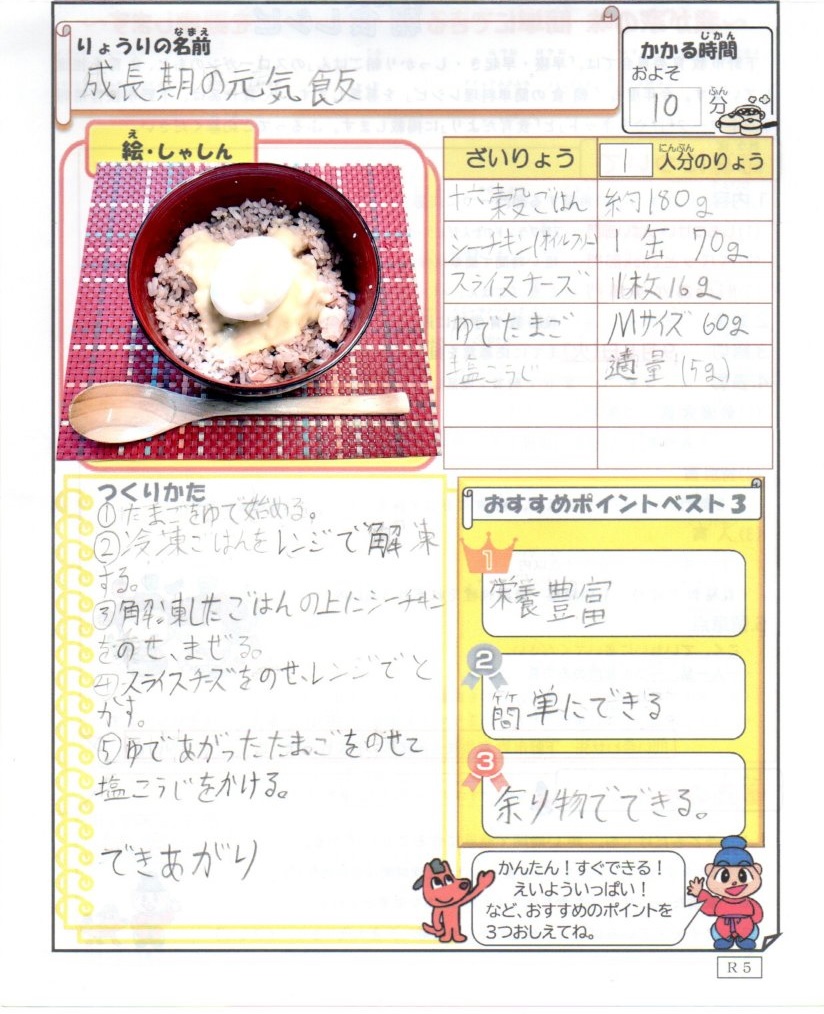 りょうりの名前
なまえ
成長期の元気飯
じかん
かかる時間
およそ
10 分
ふん
え
絵・しゃしん
ざいりょう 1 人分のりょう
にんぶん
十六穀ごはん 約180g
シーチキン(オイルフリー 1缶 70g
スライスチーズ 1枚16g
ゆでたまご Mサイズ 60g
塩こうじ 適量(5g)
つくりかた
①たまごをゆで始める。
②冷凍ごはんをレンジで解凍
する。
③解凍したごはんの上にシーチキン
をのせ、まぜる。
④スライスチーズをのせ、レンジでと
かす。
⑤ゆであがったたまごをのせて
塩こうじをかける。
できあがり
おすすめポイントベスト3
1
栄養豊富
2
簡単にできる
3
余り物でできる。
かんたん!すぐできる!
えいよういっぱい!
など、おすすめのポイントを
3つおしえてね。
R5